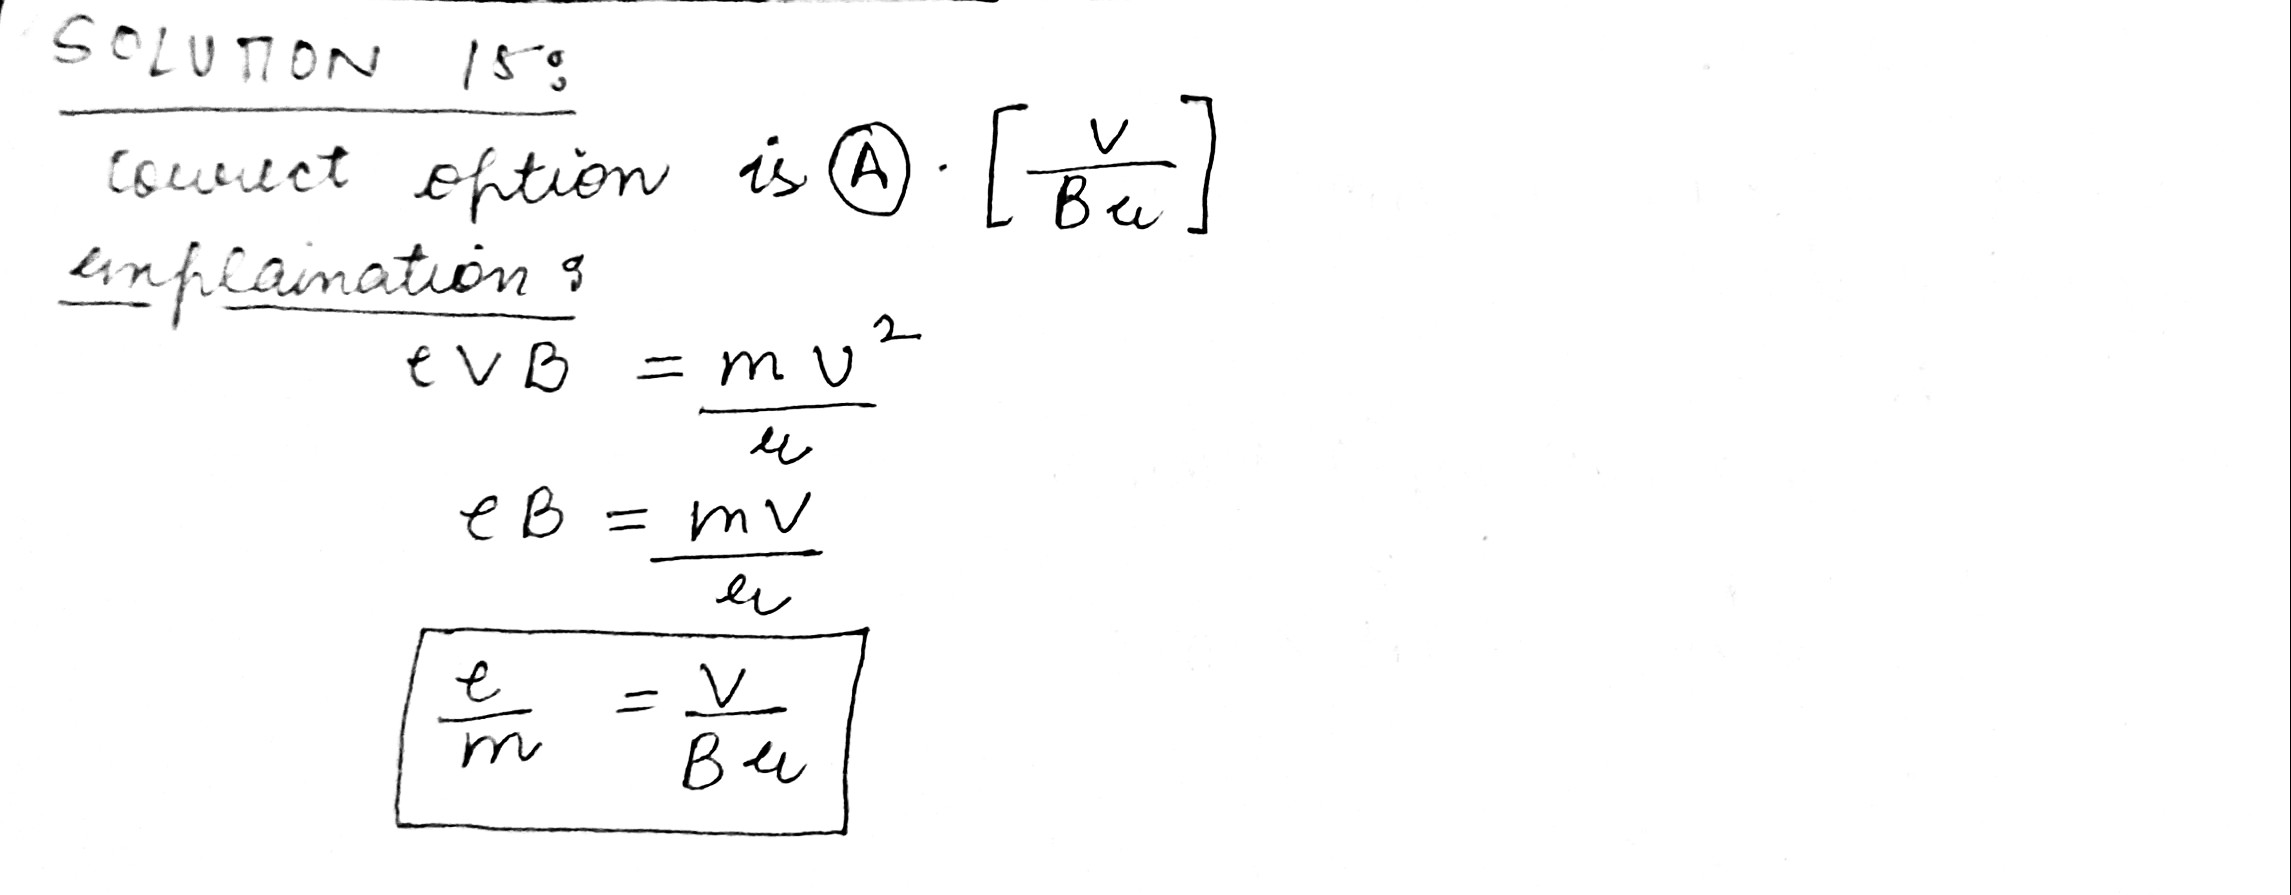 SOLUTION 15:
correct option is (A) . [v / Br]
explaination :
e V B = m v² / r
e B = m v / r
e / m = v / B r